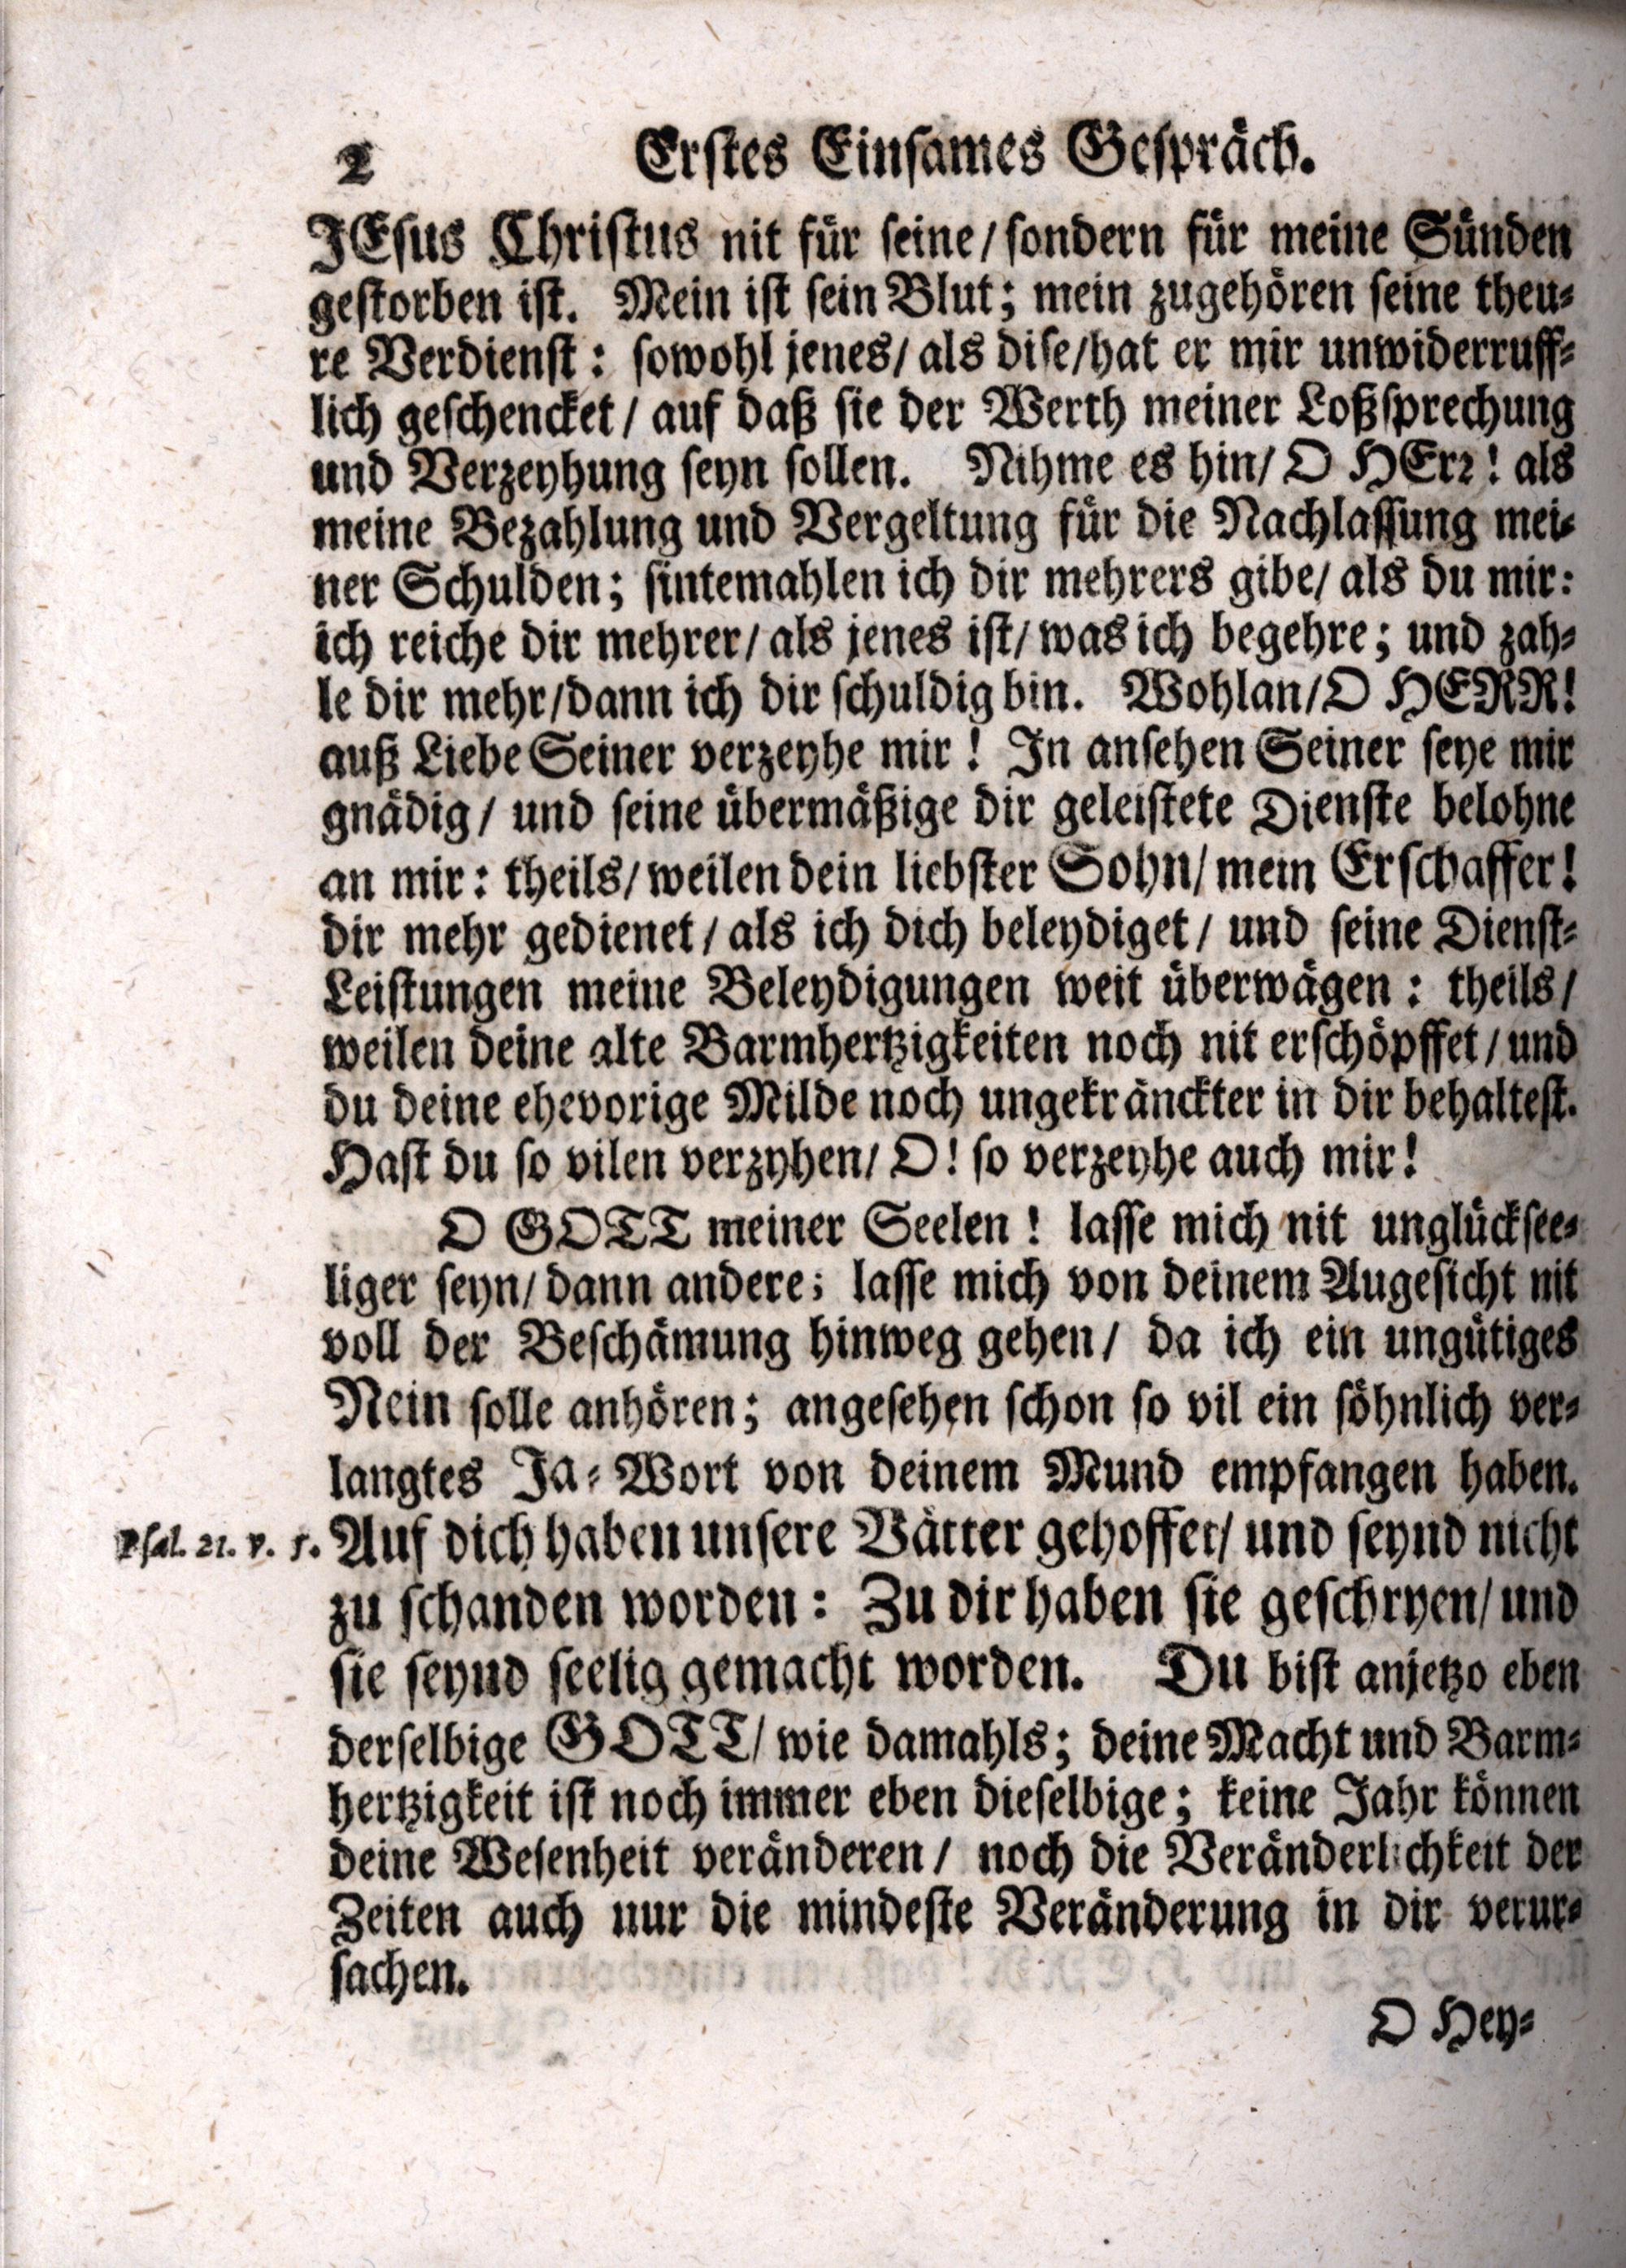 2 Erstes Einsames Gespräch.
JEsus Christus nit für seine / sondern für meine Sünden
gestorben ist. Mein ist sein Blut; mein zugehören seine theu-
re Verdienst: sowohl jenes / als dise / hat er mir unwiderruff-
lich geschencket / auf daß sie der Werth meiner Loßsprechung
und Verzeyhung seyn sollen. Nihme es hin / O HErr! als
meine Bezahlung und Vergeltung für die Nachlassung mei-
ner Schulden; sintemahlen ich dir mehrers gibe / als du mir:
ich reiche dir mehrer / als jenes ist / was ich begehre; und zah-
le dir mehr / dann ich dir schuldig bin. Wohlan / O HERR!
auß Liebe Seiner verzeyhe mir! In ansehen Seiner seye mir
gnädig / und seine übermäßige dir geleistete Dienste belohne
an mir: theils / weilen dein liebster Sohn / mein Erschaffer!
dir mehr gedienet / als ich dich beleydiget / und seine Dienst-
Leistungen meine Beleydigungen weit überwägen: theils /
weilen deine alte Barmhertzigkeiten noch nit erschöpffet / und
du deine ehevorige Milde noch ungekränckter in dir behaltest.
Hast du so vilen verzyhen / O! so verzeyhe auch mir!
O GOTT meiner Seelen! lasse mich nit unglücksee-
liger seyn / dann andere; lasse mich von deinem Augesicht nit
voll der Beschämung hinweg gehen / da ich ein ungütiges
Nein solle anhören; angesehen schon so vil ein söhnlich ver-
langtes Ja-Wort von deinem Mund empfangen haben.
Psal. 21. v. 5. Auf dich haben unsere Vätter gehoffet / und seynd nicht
zu schanden worden: Zu dir haben sie geschryen / und
sie seynd seelig gemacht worden. Du bist anjetzo eben
derselbige GOTT / wie damahls; deine Macht und Barm-
hertzigkeit ist noch immer eben dieselbige; keine Jahr können
deine Wesenheit veränderen / noch die Veränderlichkeit der
Zeiten auch nur die mindeste Veränderung in dir verur-
sachen.
O Hey-